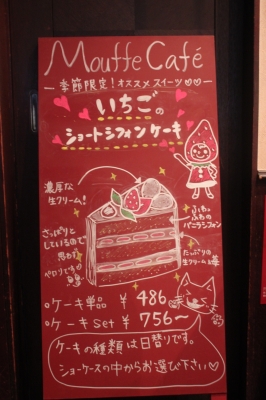 Mouffe Café
季節限定！オススメスイーツ♡♡
いちごの
ショートシフォンケーキ
濃厚な
生クリーム！
さっぱりと
しているので
思わず
ペロリです
ふわ
ふわの
バニラシフォン
たっぷりの
生クリーム
・ケーキ単品 ¥ 486
・ケーキset ¥ 756～
ケーキの種類は日替りです。
ショーケースの中からお選び下さい♡